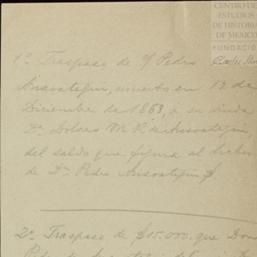 CENTRO DE
ESTUDIOS
DE HISTORIA
DE MEXICO
FUNDACIÓN
Carlos Slim
1º Traspaso de D. Pedro
Ansoategui, muerto en 12 de
Diciembre de 1863, a su viuda
Dª Dolores M. R. de Ansoategui,
del saldo que figura al haber
de Dn. Pedro Ansoategui $
2º Traspaso de $15.000. que Dona